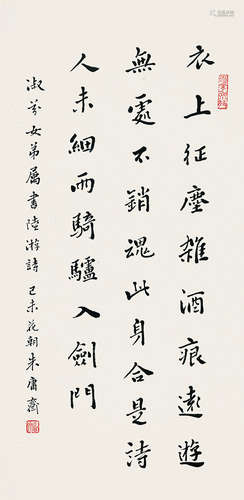 衣上征塵雜酒痕遠遊
無處不銷魂此身合是詩
人未細雨騎驢入劍門
淑芬女弟屬書陸游詩 己未花朝朱庸齋